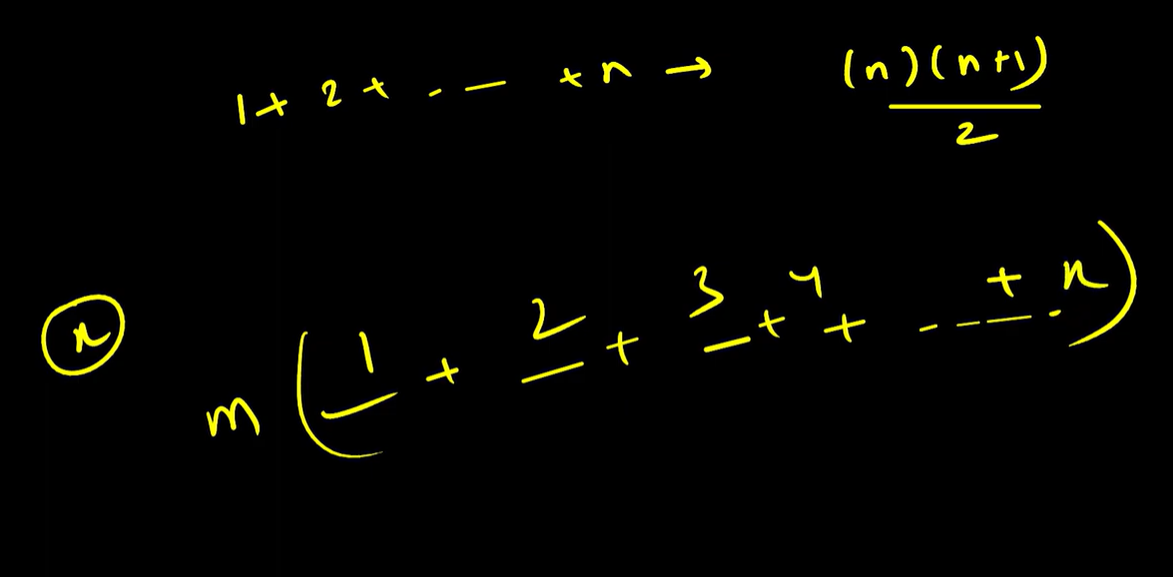 1 + 2 + . — + n → (n)(n+1)/2
n
m(1 + 2 + 3 + 4 + . — — . + n)